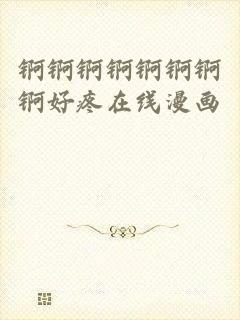 锕锕锕锕锕锕锕
锕好疼在线漫画